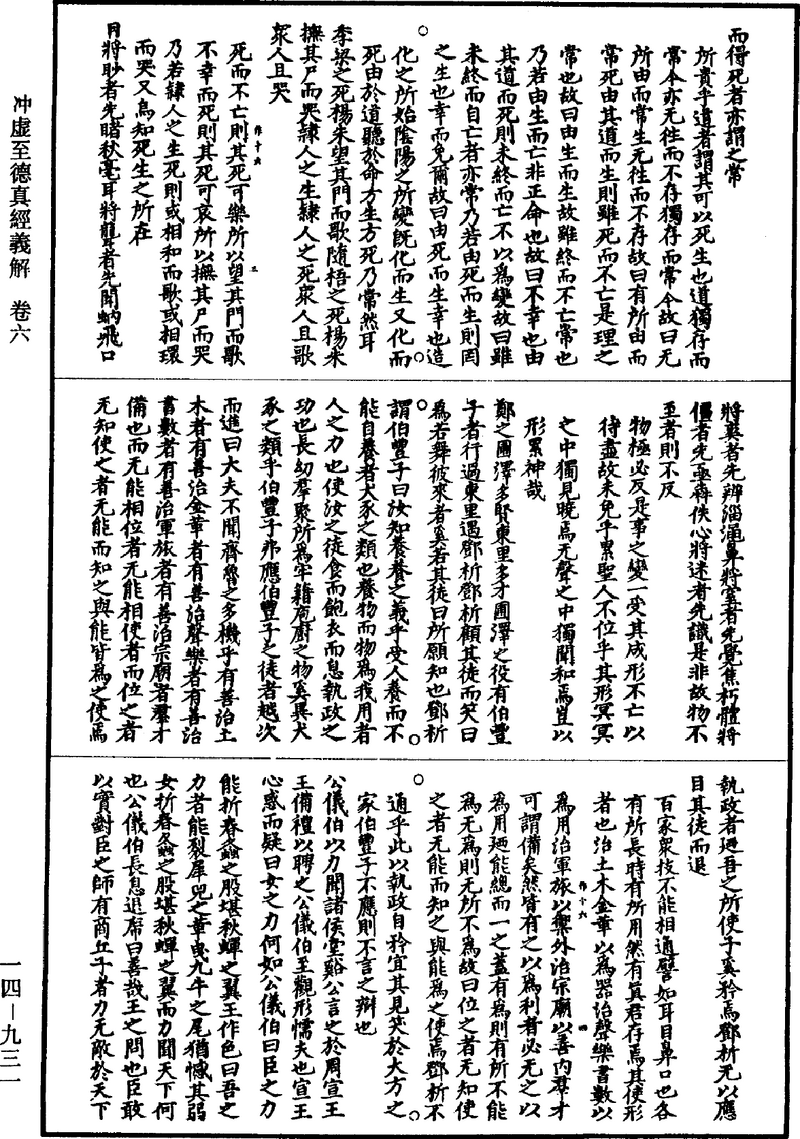 冲虛至德真經義解　卷六
而得死者亦謂之常
所貴乎道者謂其可以死生也道獨存而
常今亦无往而不存獨存而常今故曰无
所由而常生无往而不存故曰有所由而
常死由其道而生則雖死而不亡是理之
常也故曰由生而生故雖終而不亡常也
乃若由生而亡非正命也故曰不幸也由
其道而死則未終而亡不以為變故曰雖
未終而自亡者亦常乃若由死而生則罔
之生也幸而免爾故曰由死而生幸也造
化之所始陰陽之所變既化而生又化而
死由於道聽於命方生方死乃常然耳
季梁之死楊朱望其門而歌隨梧之死楊朱
撫其尸而哭隸人之生隸人之死眾人且歌
眾人且哭
死而不亡則其死可樂所以望其門而歌
不幸而死則其死可哀所以撫其尸而哭
乃若隸人之生死則或相和而歌或相環
而哭又烏知死生之所在
目將眇者先睹秋毫耳將聾者先聞蚋飛口
將爽者先辨淄澠鼻將窒者先覺焦朽體將
僵者先亟犇佚心將迷者先識是非故物不
至者則不反
物極必反是事之變一受其成形不亡以
待盡故未免乎累聖人不位乎其形冥冥
之中獨見曉焉无聲之中獨聞和焉豈以
形累神哉
鄭之圃澤多賢東里多才圃澤之役有伯豐
子者行過東里遇鄧析鄧析顧其徒而笑曰
為若舞彼來者奚若其徒曰所願知也鄧析
謂伯豐子曰汝知養養之義乎受人養而不
能自養者犬豕之類也養物而物為我用者
人之力也使汝之徒食而飽衣而息執政之
功也長幼羣聚所為牢籍庖廚之物奚異犬
豕之類乎伯豐子弗應伯豐子之徒者越次
而進曰大夫不聞齊魯之多機乎有善治土
木者有善治金革者有善治聲樂者有善治
書數者有善治軍旅者有善治宗廟者羣才
備也而无能相位者无能相使者而位之者
无知使之者无能而知之與能皆為之使焉
執政者廼吾之所使子奚矜焉鄧析无以應
目其徒而退
百家眾技不能相通譬如耳目鼻口也各
有所長時有所用然有真君存焉其使形
者也治土木金革以為器治聲樂書數以
為用治軍旅以禦外治宗廟以善內群才
可謂備矣然皆有之以為利者必无之以
為用廼能總而一之蓋有為則有所不能
為无為則无所不為故曰位之者无知使
之者无能而知之與能為之使焉鄧析不
通乎此以執政自矜宜其見笑於大方之
家伯豐子不應則不言之辯也
公儀伯以力聞諸侯堂谿公言之於周宣王
王備禮以聘之公儀伯至觀形懦夫也宣王
心惑而疑曰女之力何如公儀伯曰臣之力
能折春螽之股堪秋蟬之翼王作色曰吾之
力者能裂犀兕之革曳九牛之尾猶憾其弱
女折春螽之股堪秋蟬之翼而力聞天下何
也公儀伯長息退席曰善哉王之問也臣敢
以實對臣之師有商丘子者力无敵於天下
一四—九三一